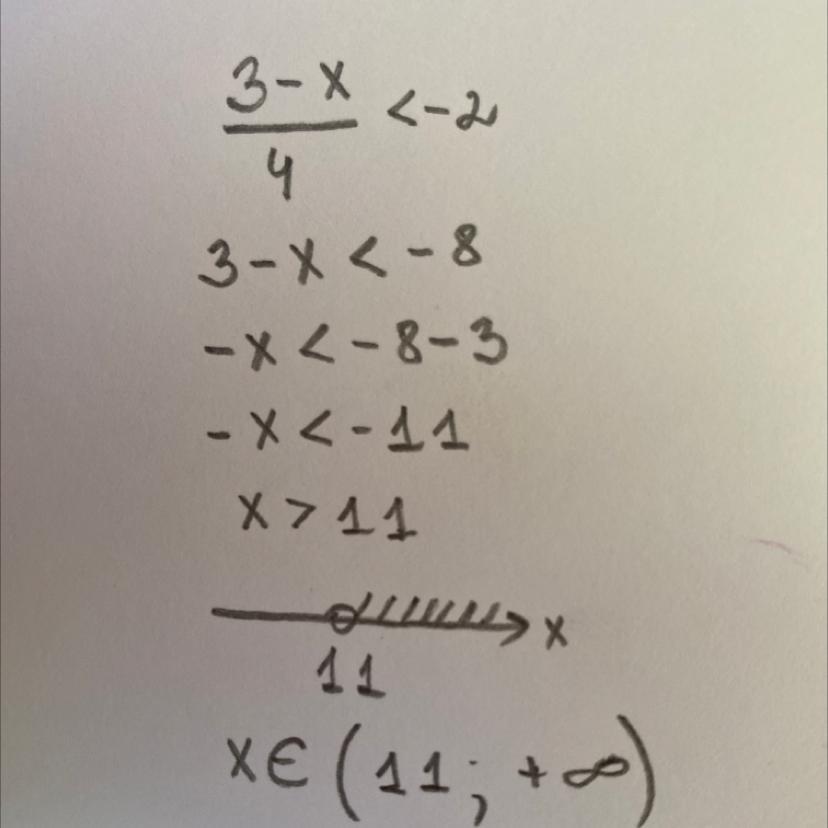 3-x/4 <-2
3-x < -8
-x < -8-3
-x < -11
x > 11
x
11
x∈(11; +∞)